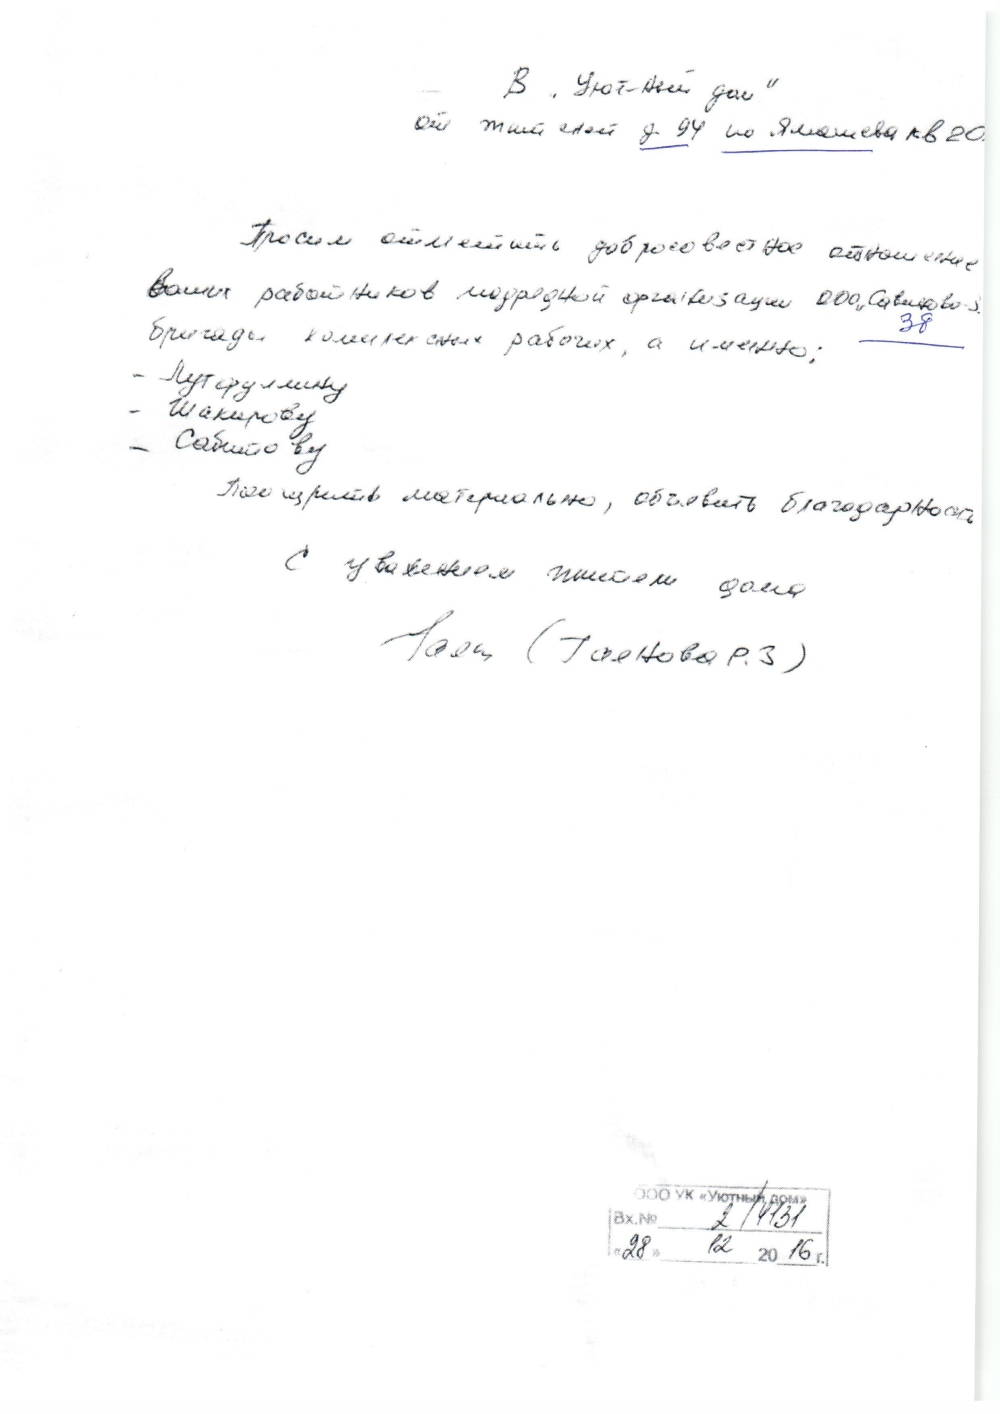 В "Уютный дом"
от жителей д. 94 по Ямашева кв 20
Просим отметить добросовестное отношение
Ваших работников подрядной организации ООО "Савиново-
38
бригады комплексных рабочих, а именно:
- Лутфуллину
- Шакирову
- Сабитову
Поощрить материально, объявить благодарность
С уважением жители дома
(Гаянова Р.З)
ООО УК «Уютный дом»
Вх.№ 2/4131
«28» 12 2016 г.